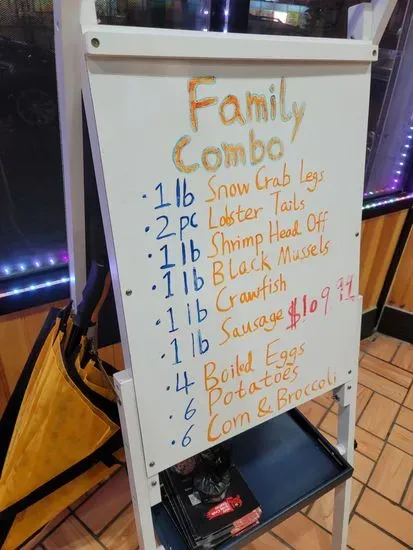 Family
Combo
· 1 lb Snow Crab Legs
· 2 pc Lobster Tails
· 1 lb Shrimp Head Off
· 1 lb Black Mussels
· 1 lb Crawfish
· 1 lb Sausage $109.99
· 4 Boiled Eggs
· 6 Potatoes
· 6 Corn & Broccoli